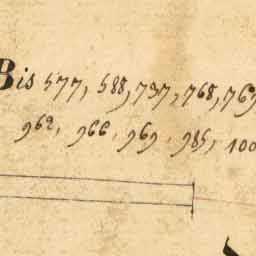 Bis 577, 588, 737, 768, 769
962, 966, 969, 985, 100